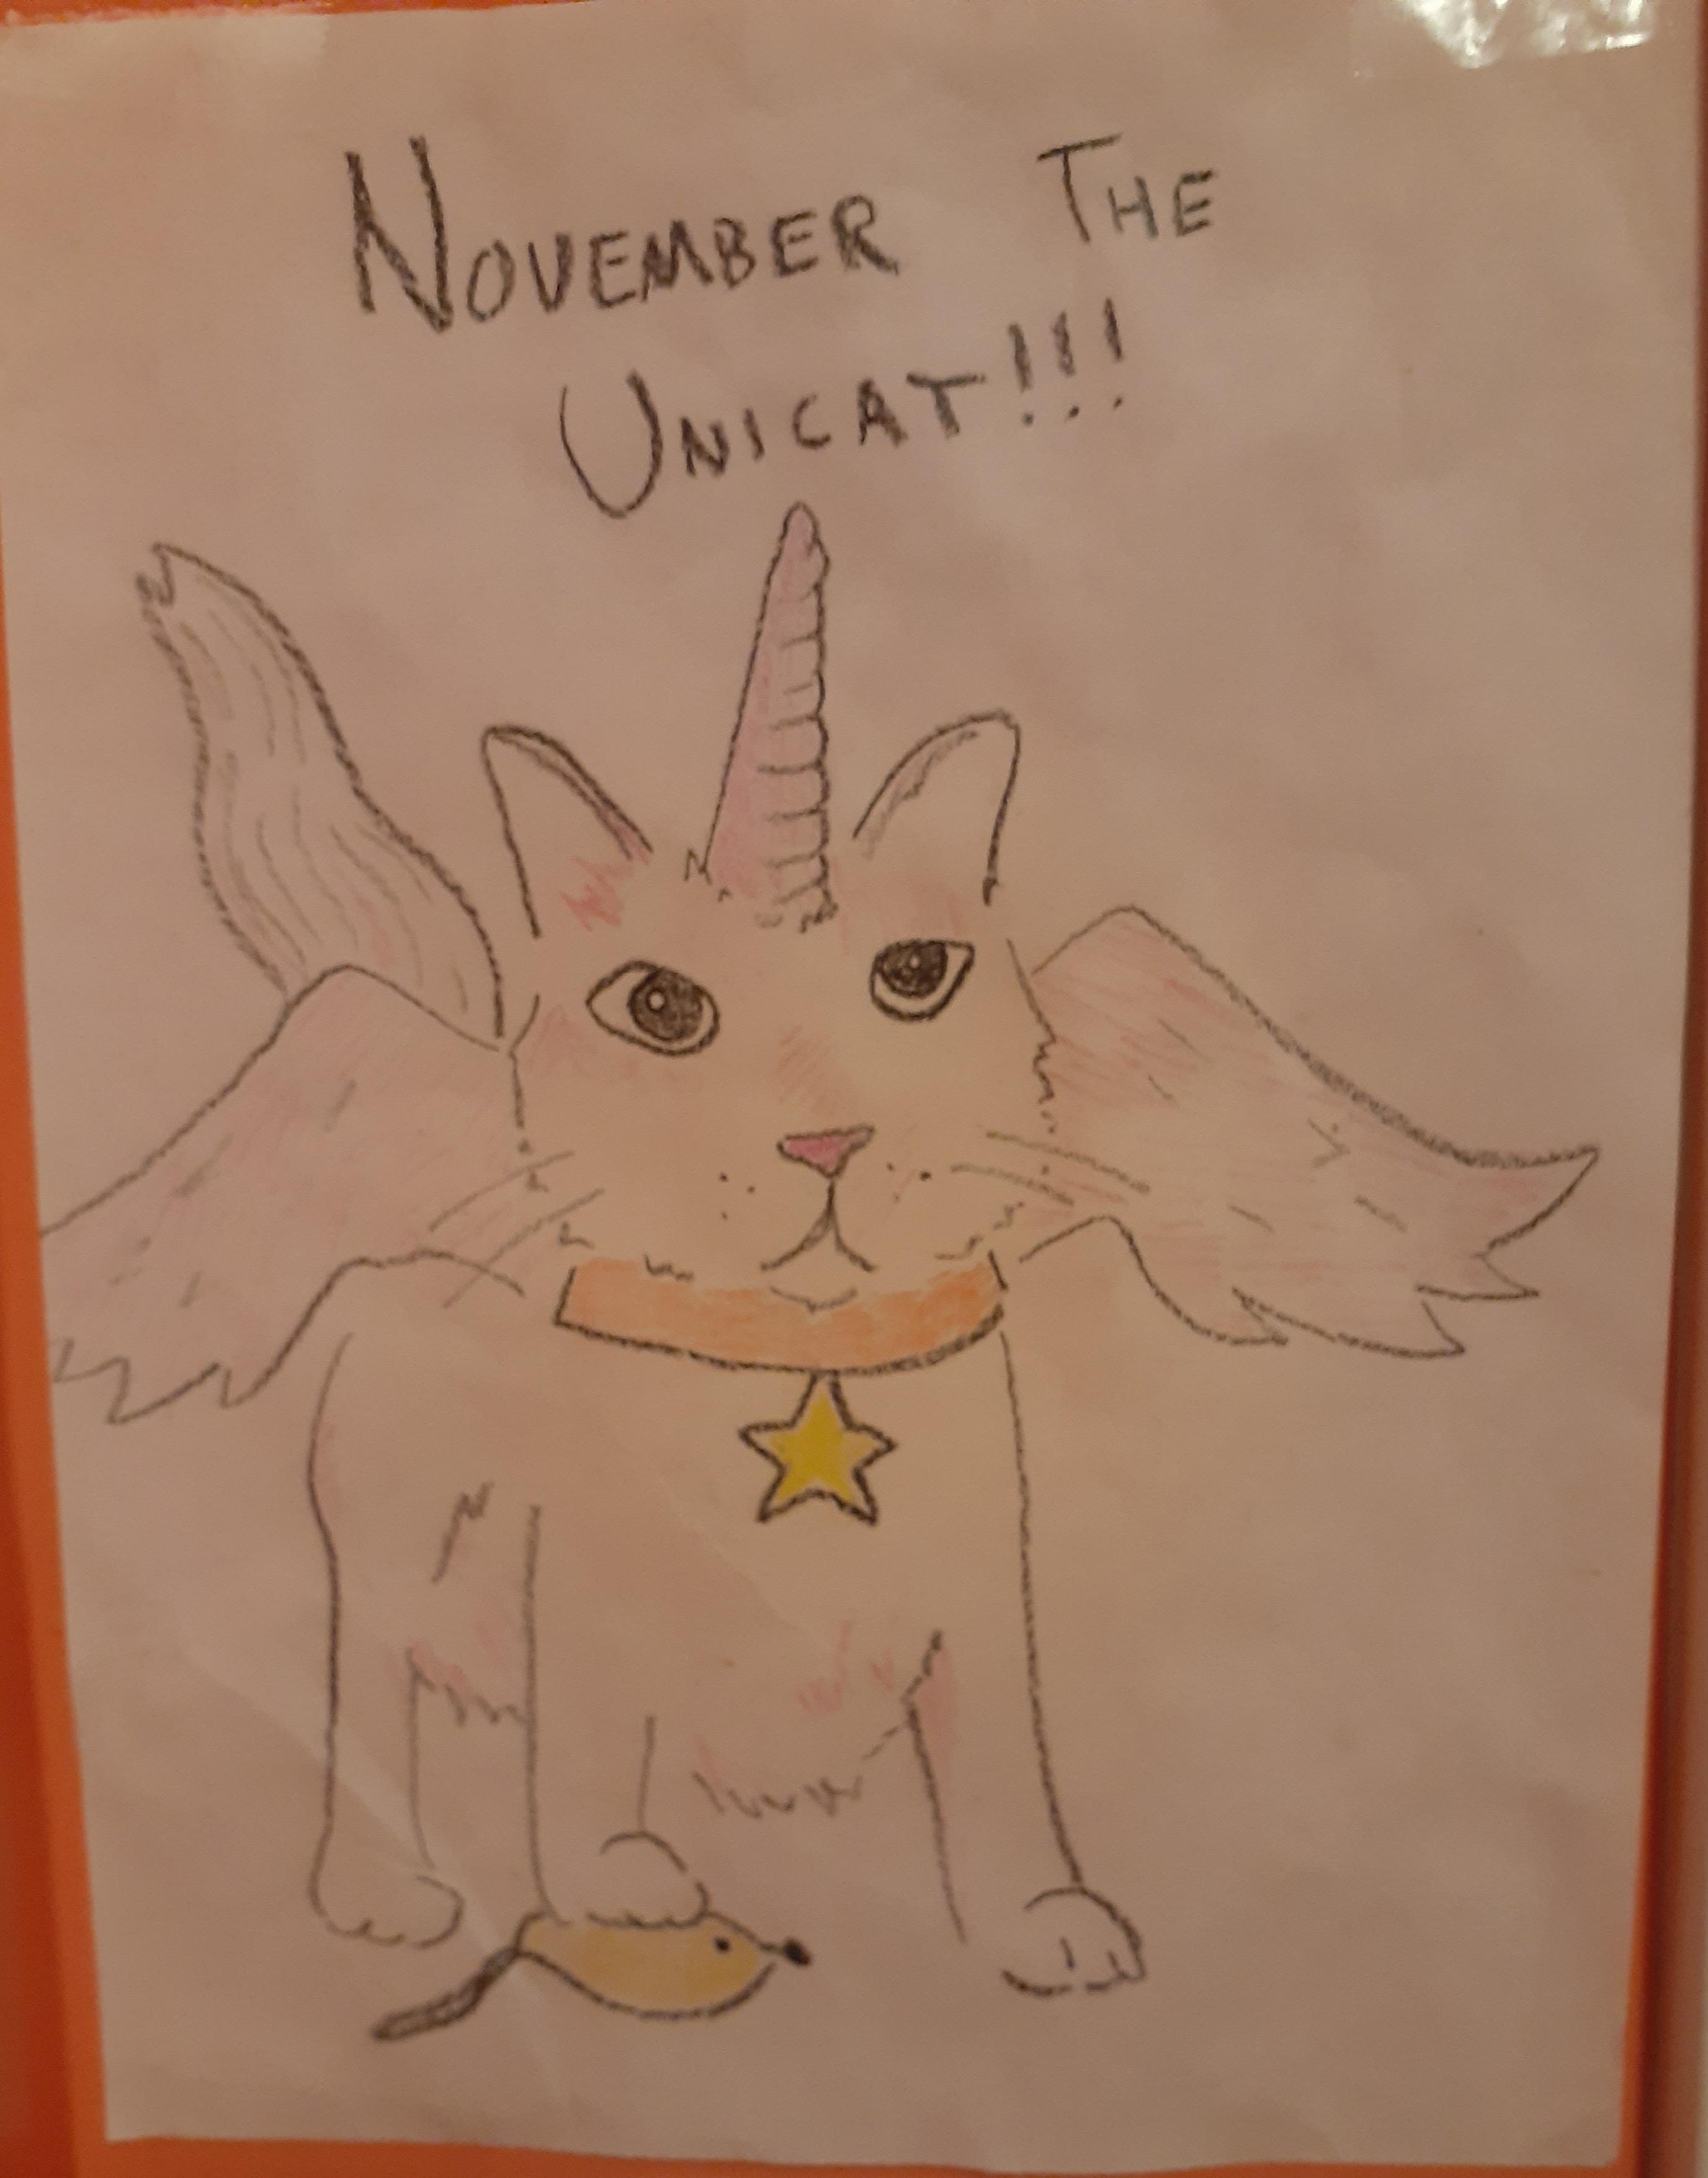 NOVEMBER THE
UNICAT!!!